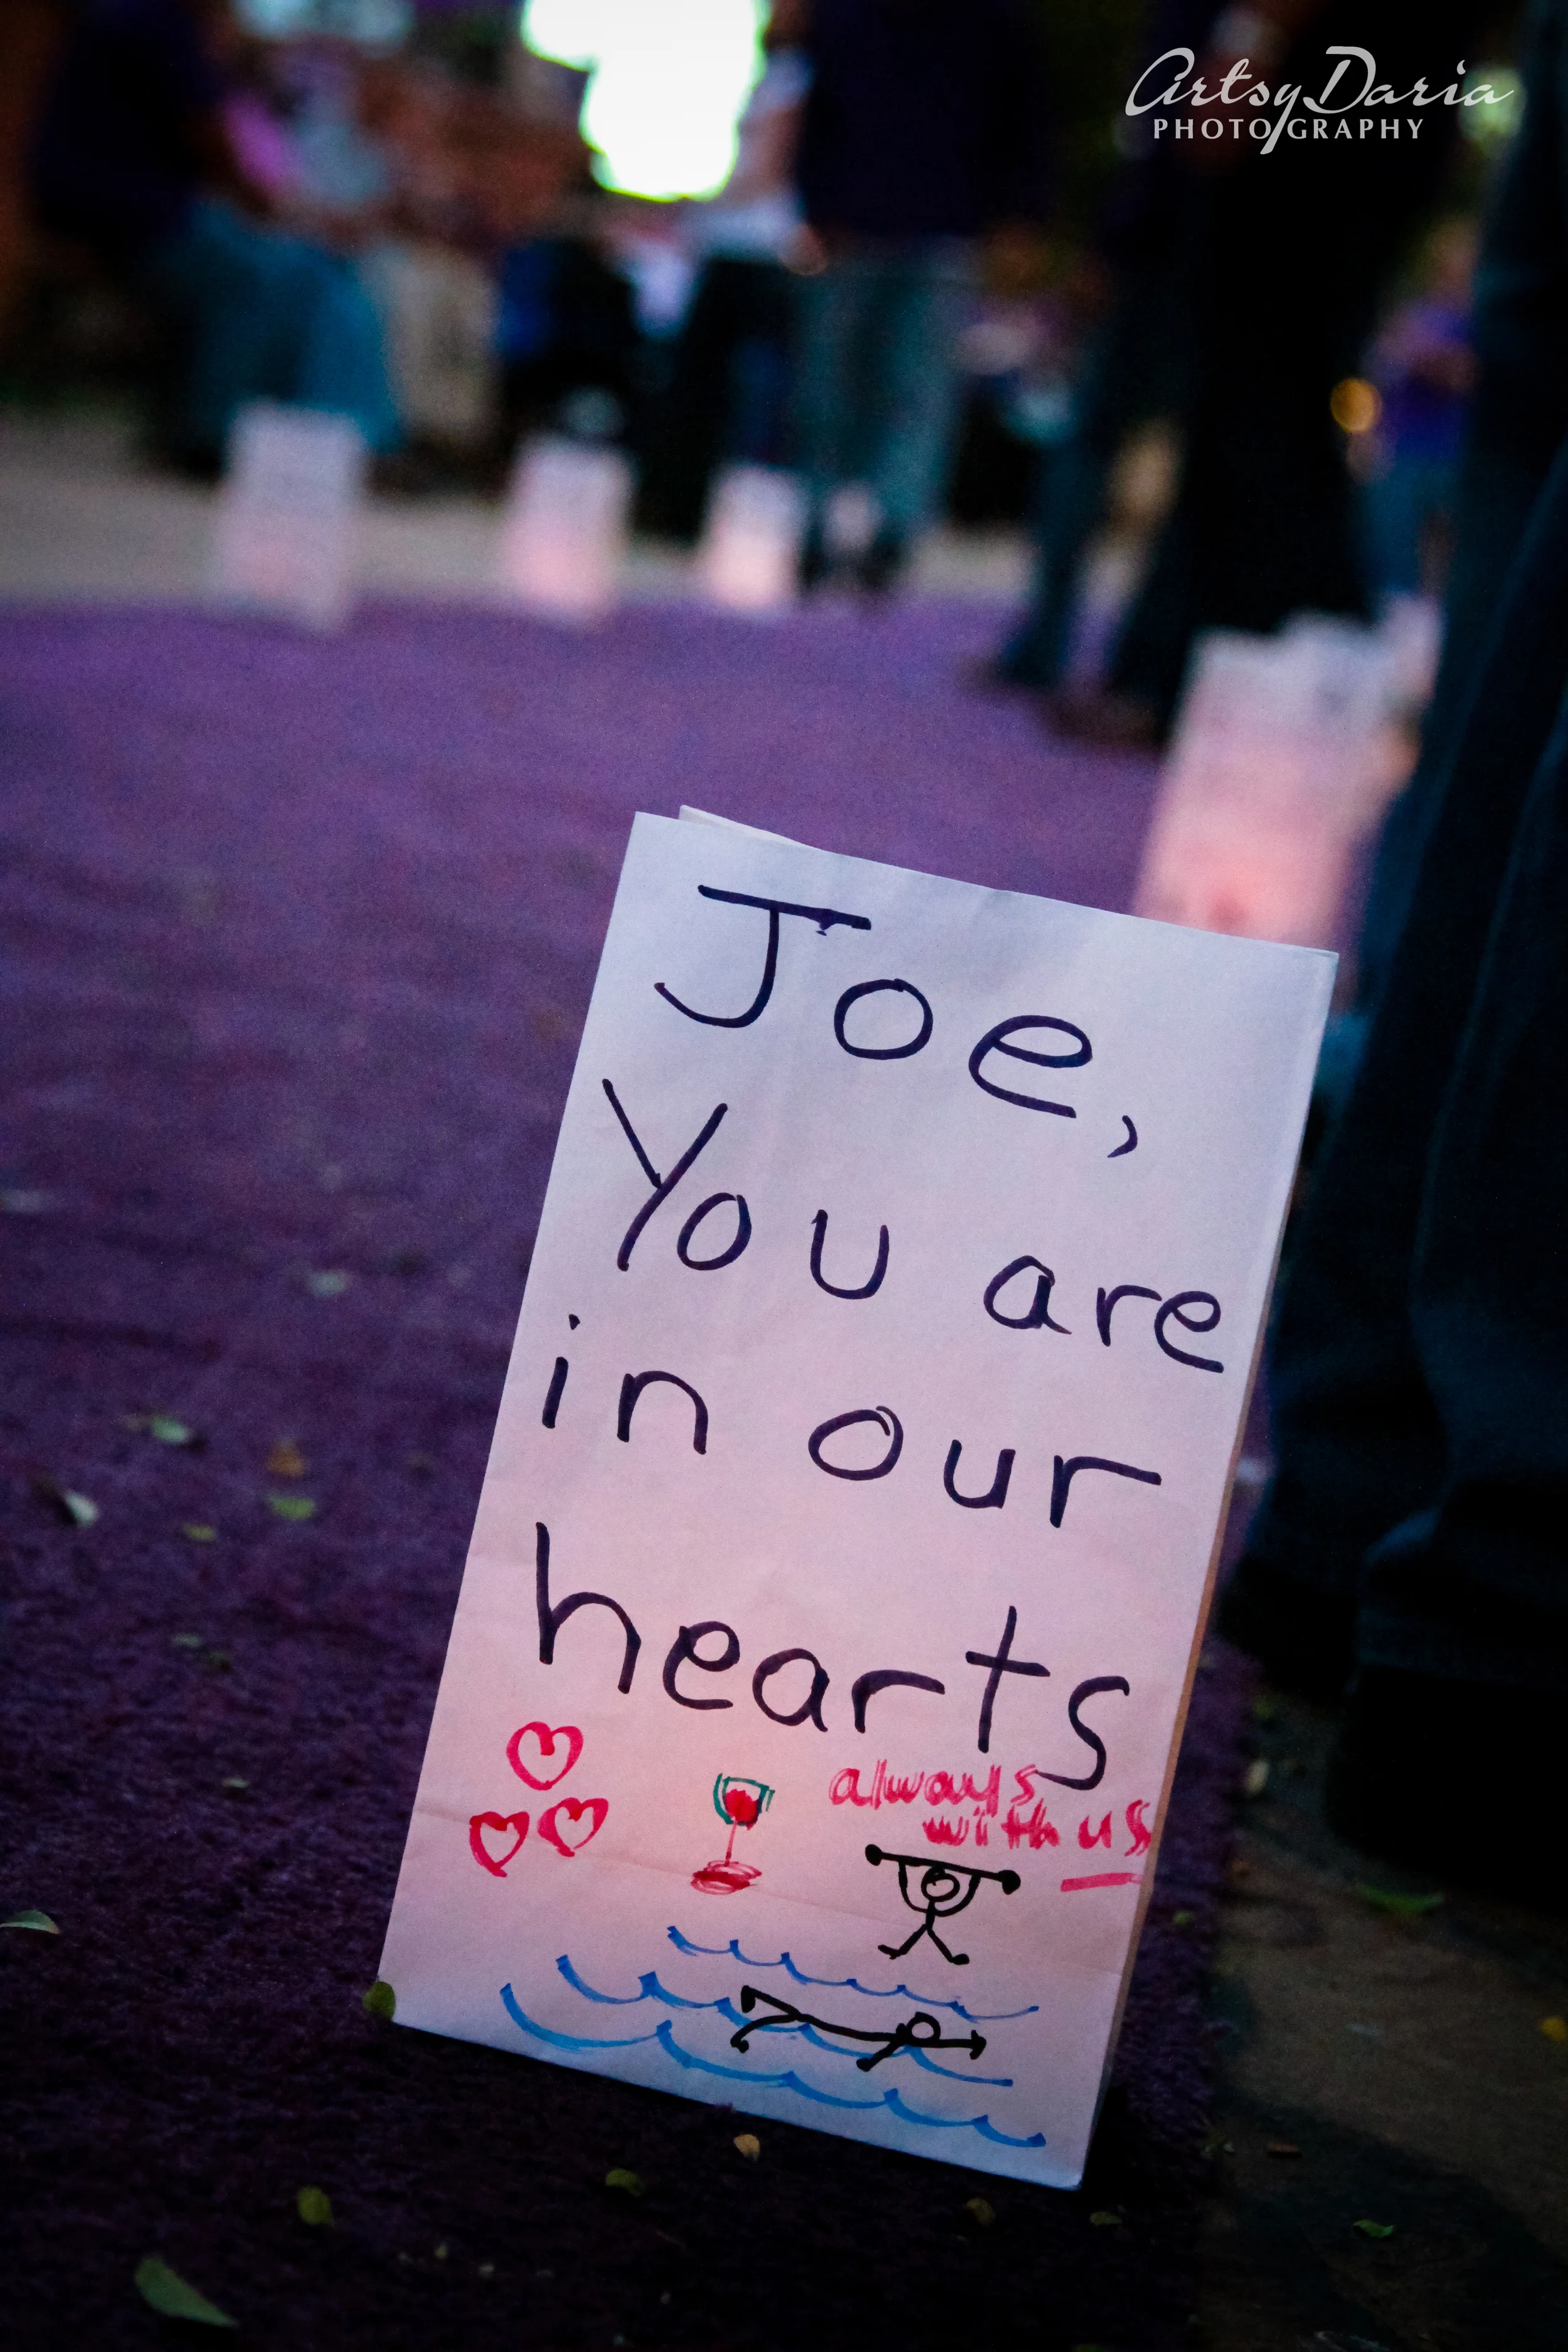 ArtsyDaria
PHOTOGRAPHY
Joe,
You are
in our
hearts
always
with us